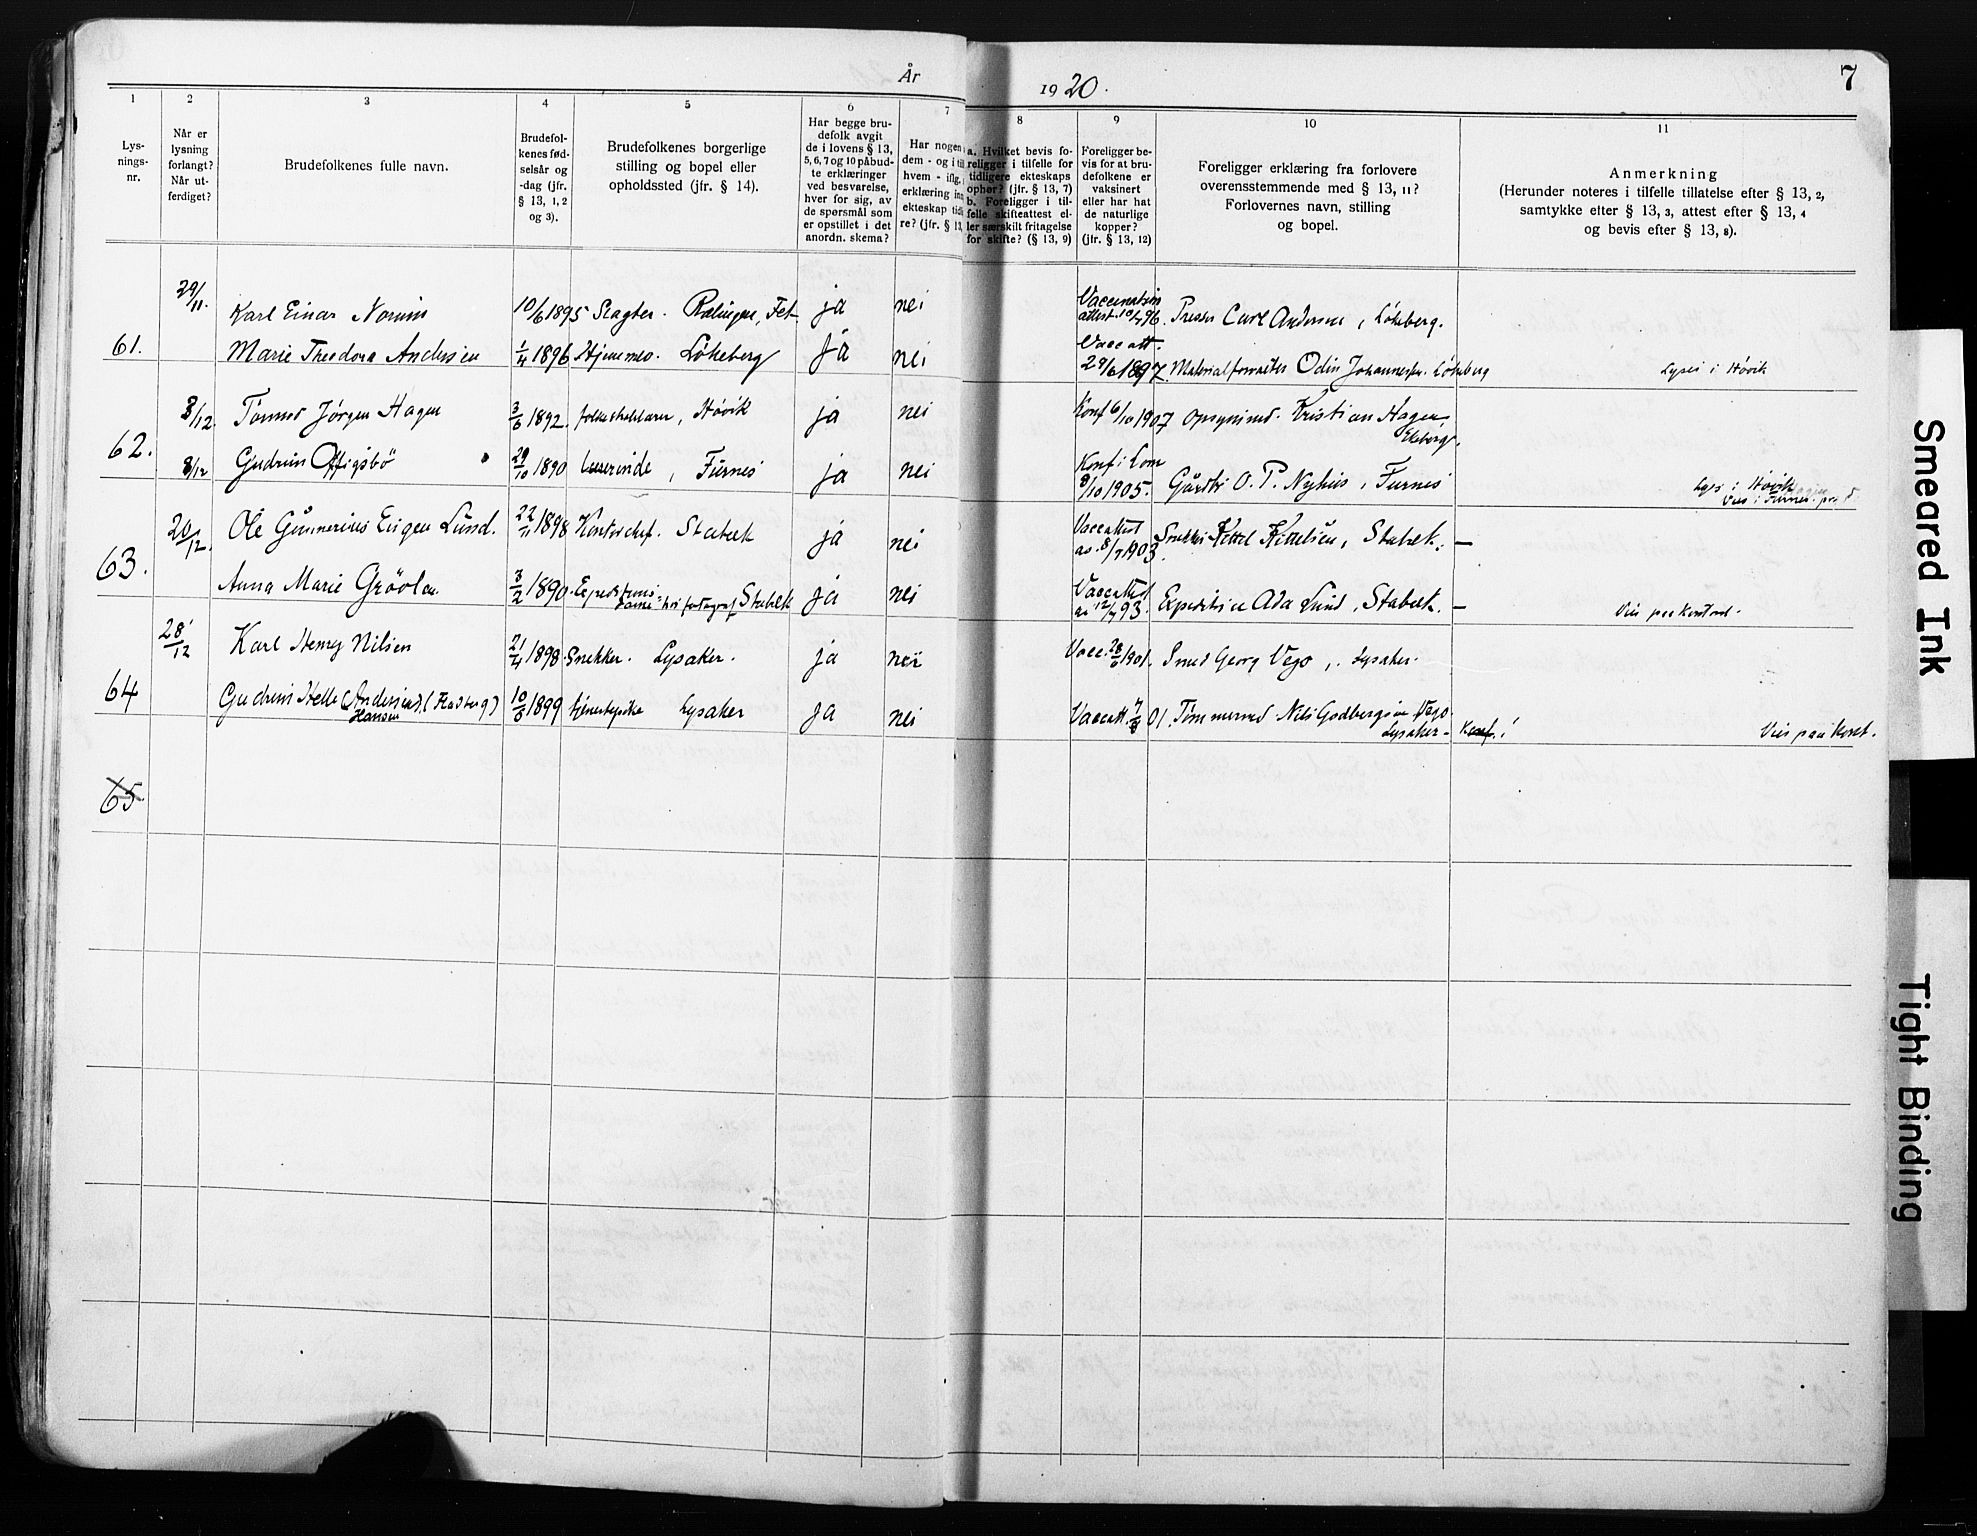 År 1920.
7
1 2 3 4 5 6 7 8 9 10 11
Lys-
nings-
nr.
Når er
lysning
forlangt?
Når ut-
ferdiget?
Brudefolkenes fulle navn.
Brudefol-
kenes fød-
selsår og
-dag (jfr.
§ 13, 1, 2
og 3).
Brudefolkenes borgerlige
stilling og bopel eller
opholdssted (jfr. § 14).
Har begge bru-
defolk avgit
de i lovens § 13,
5, 6, 7 og 10 påbud-
te erklæringer
ved besvarelse,
hver for sig, av
de spørsmål som
er opstillet i det
anordn. skema?
Har nogen
dem - og i til
hvem - iflg.
erklæring inn
ekteskap tidl
re? (jfr. § 13,
a. Hvilket bevis fo-
religger i tilfelle for
tidligere ekteskaps
ophør? (jfr. § 13, 7)
b. Foreligger i til-
felle skifteattest el-
ler særskilt fritagelse
for skifte? (§ 13, 9)
Foreligger be-
vis for at bru-
defolkene er
vaksinert
eller har hat
de naturlige
kopper?
(jfr. § 13, 12)
Foreligger erklæring fra forlovere
overensstemmende med § 13, 11?
Forlovernes navn, stilling
og bopel.
Anmerkning
(Herunder noteres i tilfelle tillatelse efter § 13, 2,
samtykke efter § 13, 3, attest efter § 13, 4
og bevis efter § 13, 8).
29/11. Karl Einar Norum 10/6 1895 Slagter. Rælingen, Fet ja nei Vaccination attest 10/7 96. Presser Carl Andersen, Løkeberg.
61. Marie Theodora Andersen 1/4 1896 Hjemmev. Løkeberg ja nei Vacc att. 29/6 1897. Materialforvalter Odin Johannessen. Løkeberg Lyses i Høvik
3/12. Tønnes Jørgen Hagen 3/6 1892. folkeskolelærer, Høvik ja nei Konf 6/10 1907 Opsynsmd. Kristian Hagen, Ekeberg.
62. 8/12 Gudrun Offigsbö 29/10 1890 Lærerinde, Furnes ja nei Konf i Lom 8/10 1905. Gårdbr O. P. Nyhus, Furnes Lyses i Høvik
Vies i Furnes
20/12. Ole Gunnerius Eugen Lund. 22/11 1898 Kontorchef. Stabæk ja nei Vaccattest av 8/7 1903. Snekker Kittel Kittelsen, Stabæk. —
63. Anna Marie Grövlen 3/2 1890. Expeditrice
dame hos fotograf Stabæk ja nei Vaccattest av 12/7 93. Expeditrice Ada Lund, Stabæk. — Vies paa kontoret.
28/12 Karl Henry Nilsen 21/4 1898. Snekker. Lysaker. ja nei Vacc. 28/6 1901. Smed Georg Vego, Lysaker.
64 Gudrun Helle (Andersen) (Fladberg)
Hansen 10/8 1899 tjenestepike Lysaker ja nei Vaccatt. 7/8 01. Tømmermd Nils Godbergsen Vego
Lysaker - Konf. ! Vies paa Kont.
65
Smeared Ink
Tight Binding